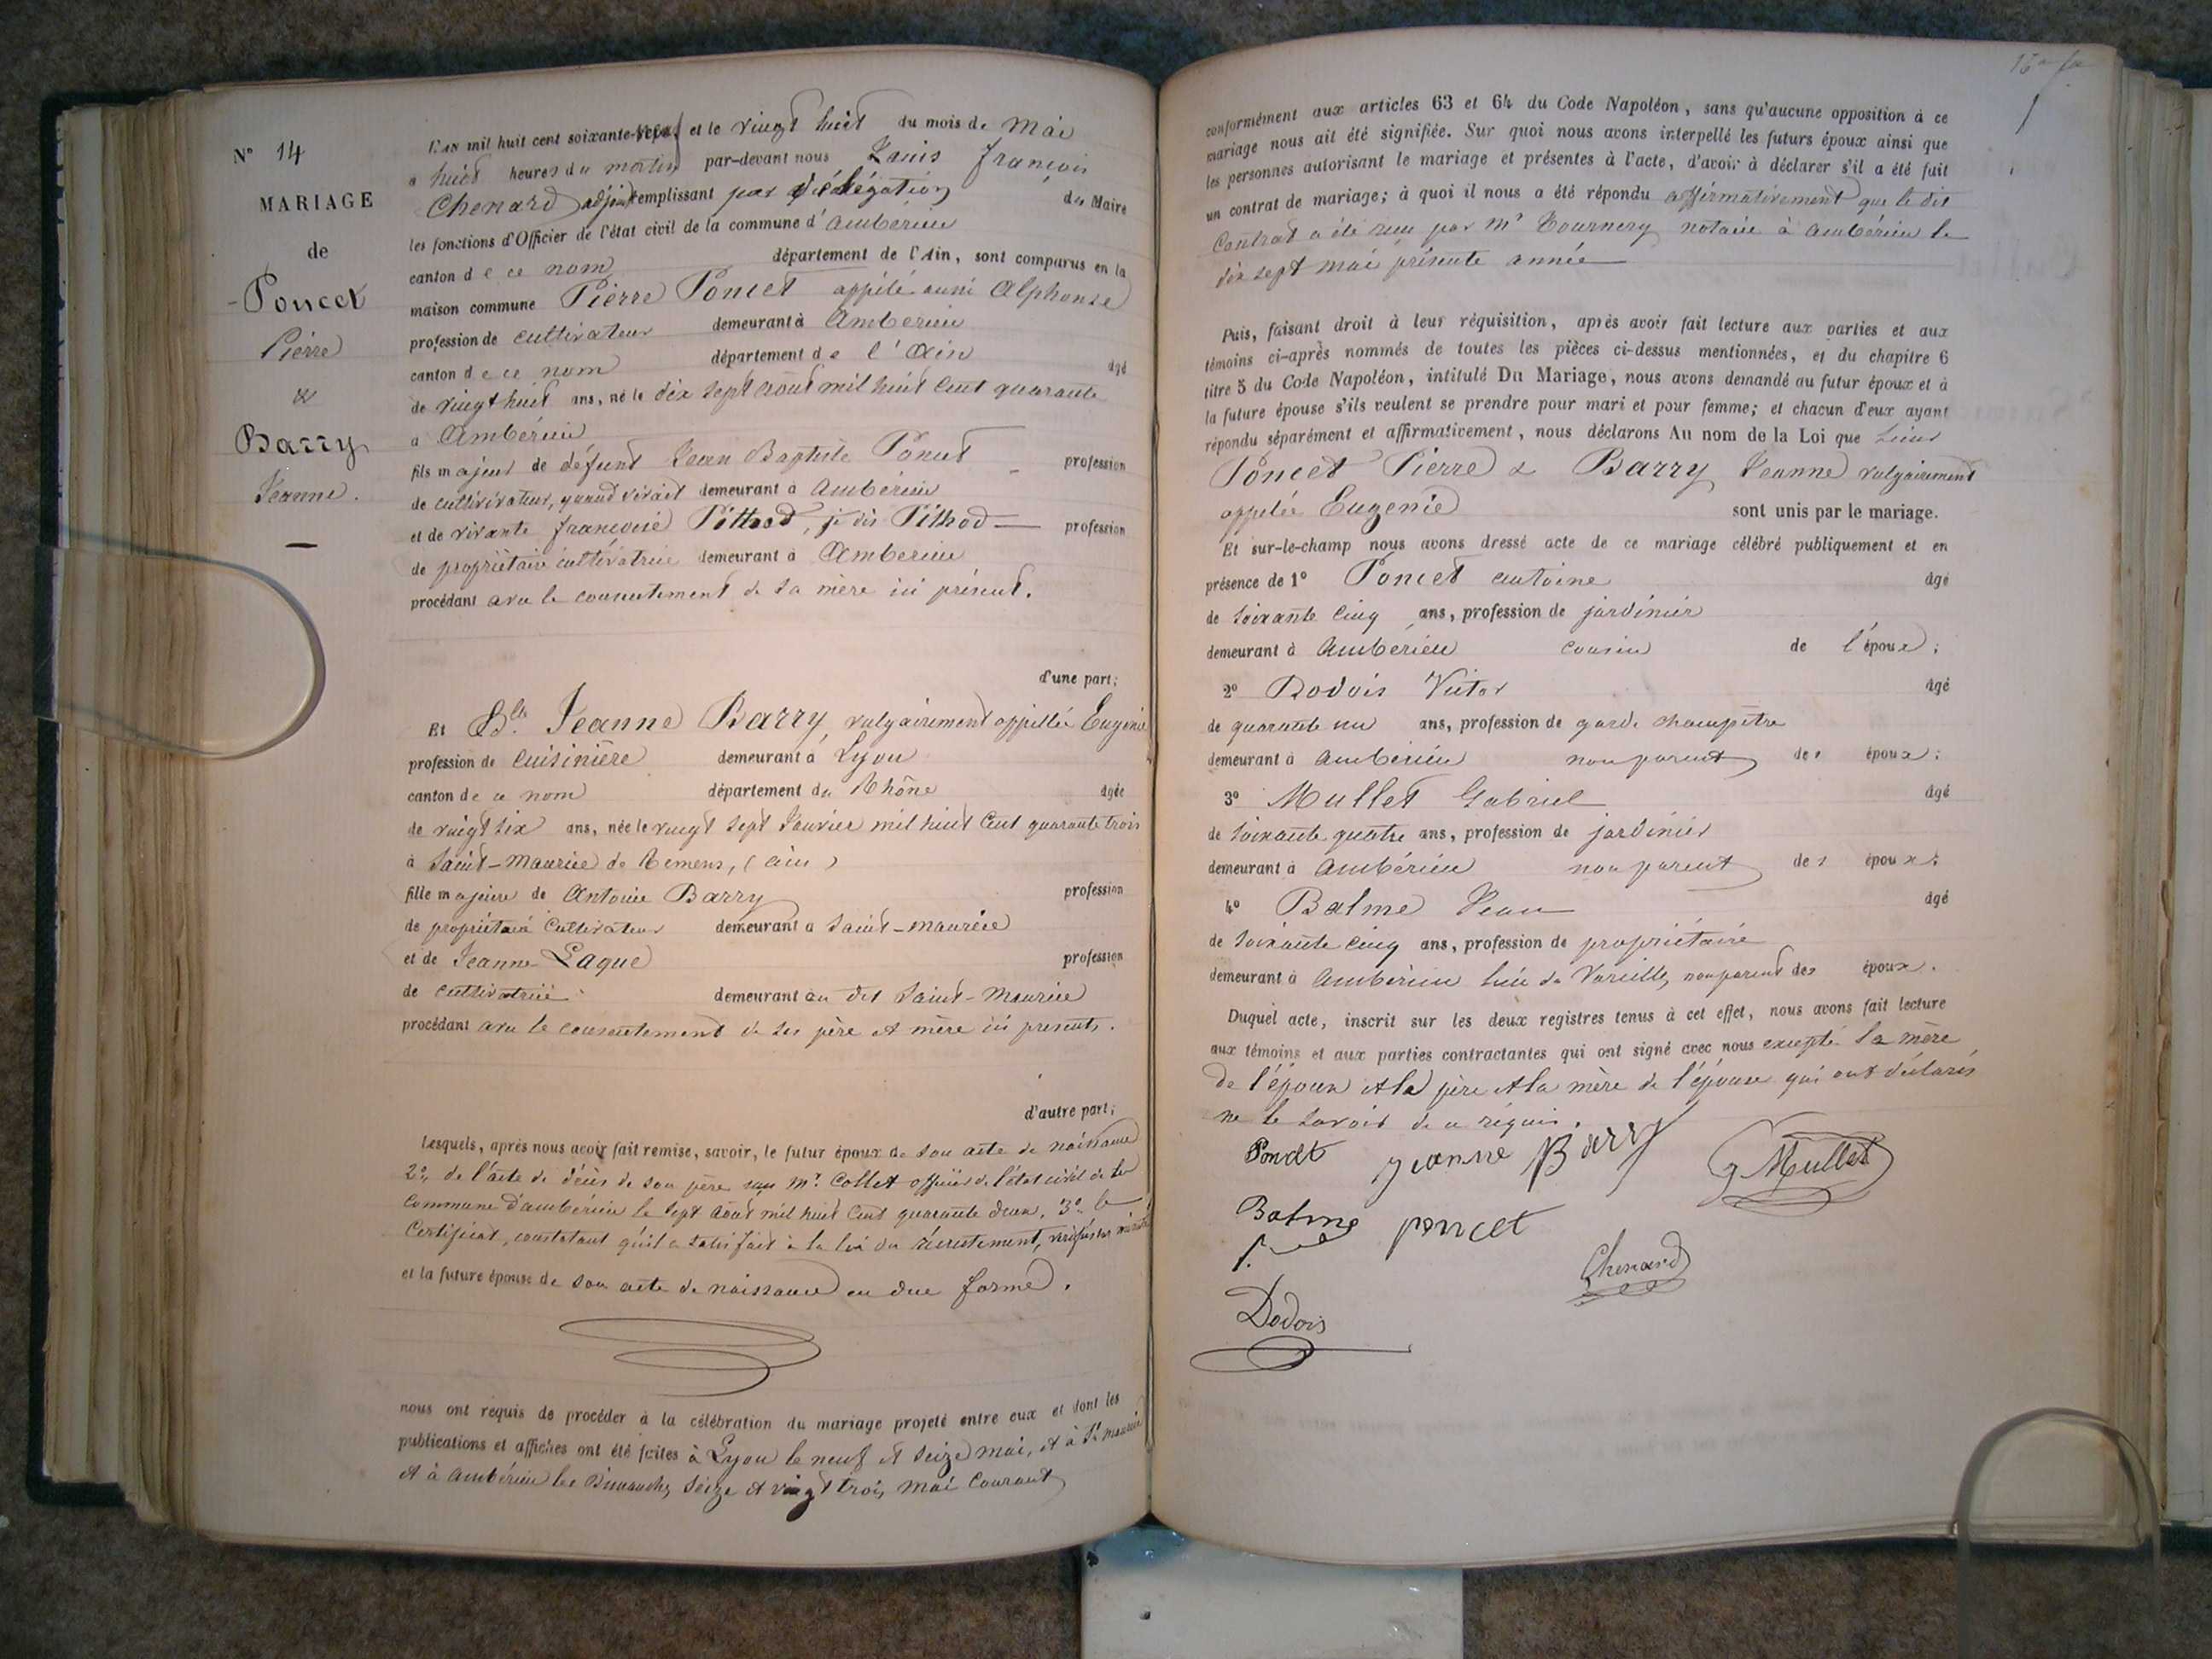 N° 14
MARIAGE
de
Poncet
Pierre
&
Barry
Jeanne.
L'an mil huit cent soixante-neuf et le vingt huit du mois de Mai
a huit heures du matin par-devant nous Louis françois
Chenard adjoint remplissant par délégation du Maire
les fonctions d'Officier de l'état civil de la commune d'ambérieu
canton de ce nom département de l'Ain, sont comparus en la
maison commune Pierre Poncet appelé aussi Alphonse
profession de cultivateur demeurant à Ambérieu
canton de ce nom département de l'Ain âgé
de vingt huit ans, né le dix sept août mil huit cent quarante
a Ambérieu
fils majeur de défunt Jean Baptiste Poncet profession
de cultivateur, quand vivait demeurant à Ambérieu
et de vivante françoise Pittrod, je dis Pithod profession
de propriétaire cultivatrice demeurant à Ambérieu
procédant avec le consentement de sa mère ici présent.
d'une part;
Et Dlle Jeanne Barry, vulgairement appellée Eugénie
profession de cuisinière demeurant à Lyon
canton de ce nom département du Rhône âgée
de vingt six ans, née le vingt sept Janvier mil huit cent quarante trois
à Saint-Maurice de Remens, (ain)
fille majeure de Antoine Barry profession
de propriétaire cultivateur demeurant a Saint-Maurice
et de Jeanne Laque profession
de cultivatrice demeurant au dit Saint-Maurice
procédant avec le consentement de ses père et mère ici presents.
d'autre part;
Lesquels, après nous avoir fait remise, savoir, le futur époux de son acte de naissance
2°, de l'acte de décès de son père Mr. Collet officier de l'état civil de la
commune d'ambérieu le sept août mil huit cent quarante deux, 3° le
Certificat, constatant qu'il a satisfait à la loi du récrutement,
et la future épouse de son acte de naissance en due forme.
nous ont requis de procéder à la célébration du mariage projeté entre eux et dont les
publications et affiches ont été faites à Lyon le neuf et seize mai, et à St Maurice
et à Ambérieu les Dimanches seize et vingt trois mai Courant
conformément aux articles 63 et 64 du Code Napoléon, sans qu'aucune opposition à ce
mariage nous ait été signifiée. Sur quoi nous avons interpellé les futurs époux ainsi que
les personnes autorisant le mariage et présentes à l'acte, d'avoir à déclarer s'il a été fait
un contrat de mariage; à quoi il nous a été répondu affirmativement que le dit
Contrat a été reçu par Me Tournery notaire à ambérieu le
dix sept mai présente année
Puis, faisant droit à leur réquisition, après avoir fait lecture aux parties et aux
témoins ci-après nommés de toutes les pièces ci-dessus mentionnées, et du chapitre 6
titre 5 du Code Napoléon, intitulé Du Mariage, nous avons demandé au futur époux et à
la future épouse s'ils veulent se prendre pour mari et pour femme; et chacun d'eux ayant
répondu séparément et affirmativement, nous déclarons Au nom de la Loi que
Poncet Pierre & Barry Jeanne vulgairement
appelée Eugenie sont unis par le mariage.
Et sur-le-champ nous avons dressé acte de ce mariage célébré publiquement et en
présence de 1° Poncet antoine âgé
de soixante cinq ans, profession de jardinier
demeurant à Ambérieu cousin de l'époux;
2° Dodois Victor âgé
de quarante un ans, profession de garde champêtre
demeurant à Ambérieu non parent des époux;
3° Mullet Gabriel âgé
de soixante quatre ans, profession de jardinier
demeurant à Ambérieu non parent des époux;
4° Balme Jean âgé
de soixante cinq ans, profession de propriétaire
demeurant à Ambérieu lieu de Vareille, non parent des époux.
Duquel acte, inscrit sur les deux registres tenus à cet effet, nous avons fait lecture
aux témoins et aux parties contractantes qui ont signé avec nous excepté la mère
de l'époux et le père et la mère de l'épouse qui ont déclarés
ne le savoir de ce réquis.
Poncet jeanne Barry G Mullet
Balme poncet
Chenard
Dodois